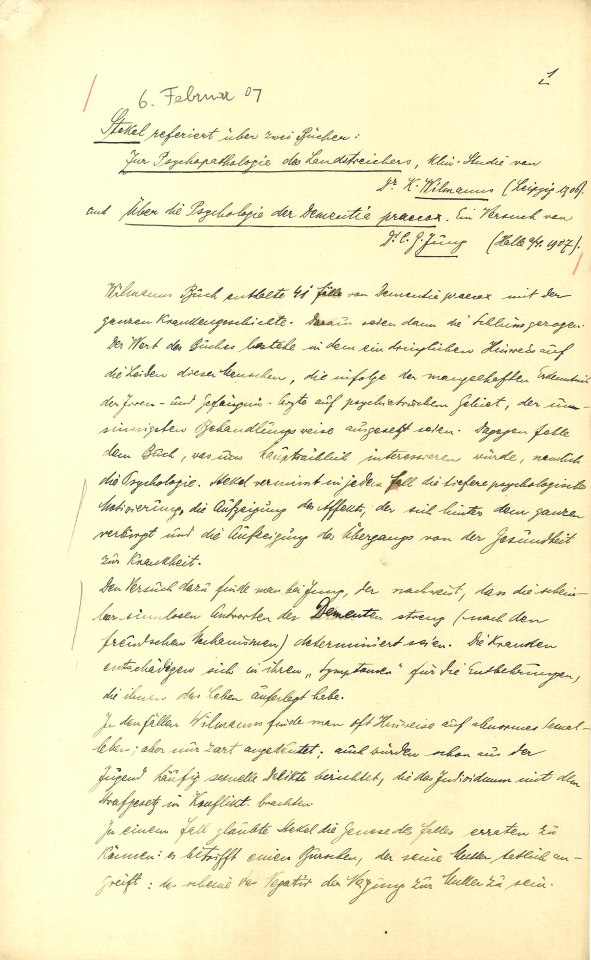 1
6. Februar 07
Stekel referiert über zwei Bücher:
Zur Psychopathologie des Landstreichers, klin. Studie von
Dr K. Wilmanns (Leipzig 1906).
und Über die Psychologie der Dementia praecox. Ein Versuch von
Dr. C. G. Jung (Halle a/S. 1907).
Wilmanns Buch enthalte 41 Fälle von Dementia praecox mit der
ganzen Krankengeschichte. Daraus seien dann die Schlüsse gezogen.
Der Wert des Buches bestehe in dem eindringlichen Hinweis auf
die Leiden dieser Menschen, die infolge der mangelhaften Erkenntnis
der Irren- und Gefängnis-Ärzte auf psychiatrischem Gebiet, der un-
sinnigsten Behandlungsweise ausgesetzt seien. Dagegen fehle
dem Buch, was uns hauptsächlich interessieren würde, nämlich
die Psychologie. Stekel vermisst in jedem Fall die tiefere psychologische
Motivierung, die Aufzeigung des Affekts, der sich hinter dem ganzen
verbirgt und die Aufzeigung des Übergangs von der Gesundheit
zur Krankheit.
Den Versuch dazu finde man bei Jung, der nachweist, dass die schein-
bar sinnlosen Antworten der Dementen streng (nach den
freudschen Mechanismen) determiniert seien. Die Kranken
entschädigen sich in ihren „Symptomen" für die Entbehrungen,
die ihnen das Leben auferlegt habe.
In den Fällen Wilmanns finde man oft Hinweise auf abnormes Sexual-
leben; aber nur zart angedeutet; auch würden schon aus der
Jugend häufig sexuelle Delikte berichtet, die das Individuum mit dem
Strafgesetz in Konflikt brachten
In einem Fall glaubte Stekel die Genese des Falles erraten zu
können: es betrifft einen Burschen, der seine Mutter tätlich an-
greift: das scheine das Negativ der Neigung zur Mutter zu sein.